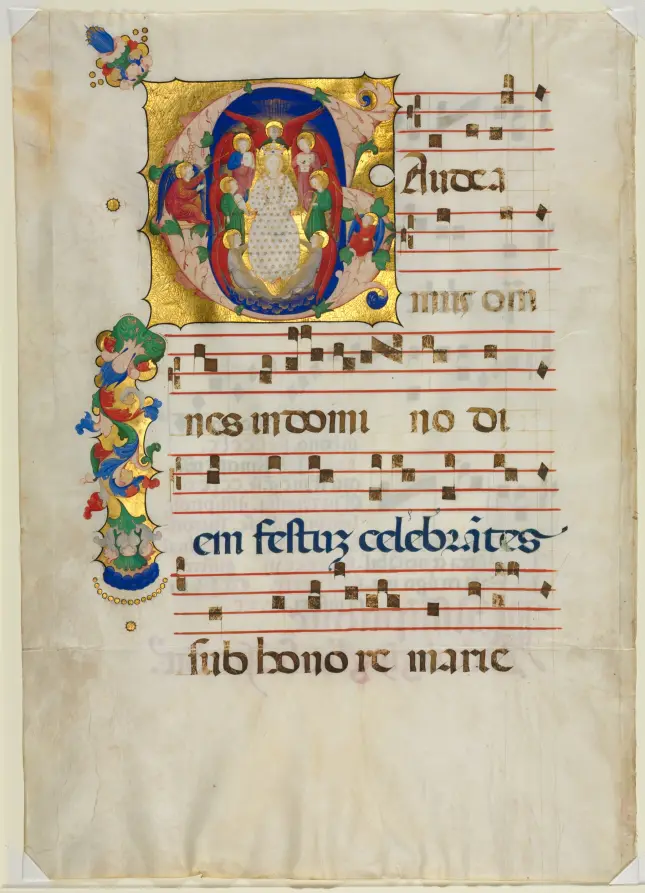 GAudea
mus om
nes in domi no di
em festuꝫ celebrātes
sub hono re marie